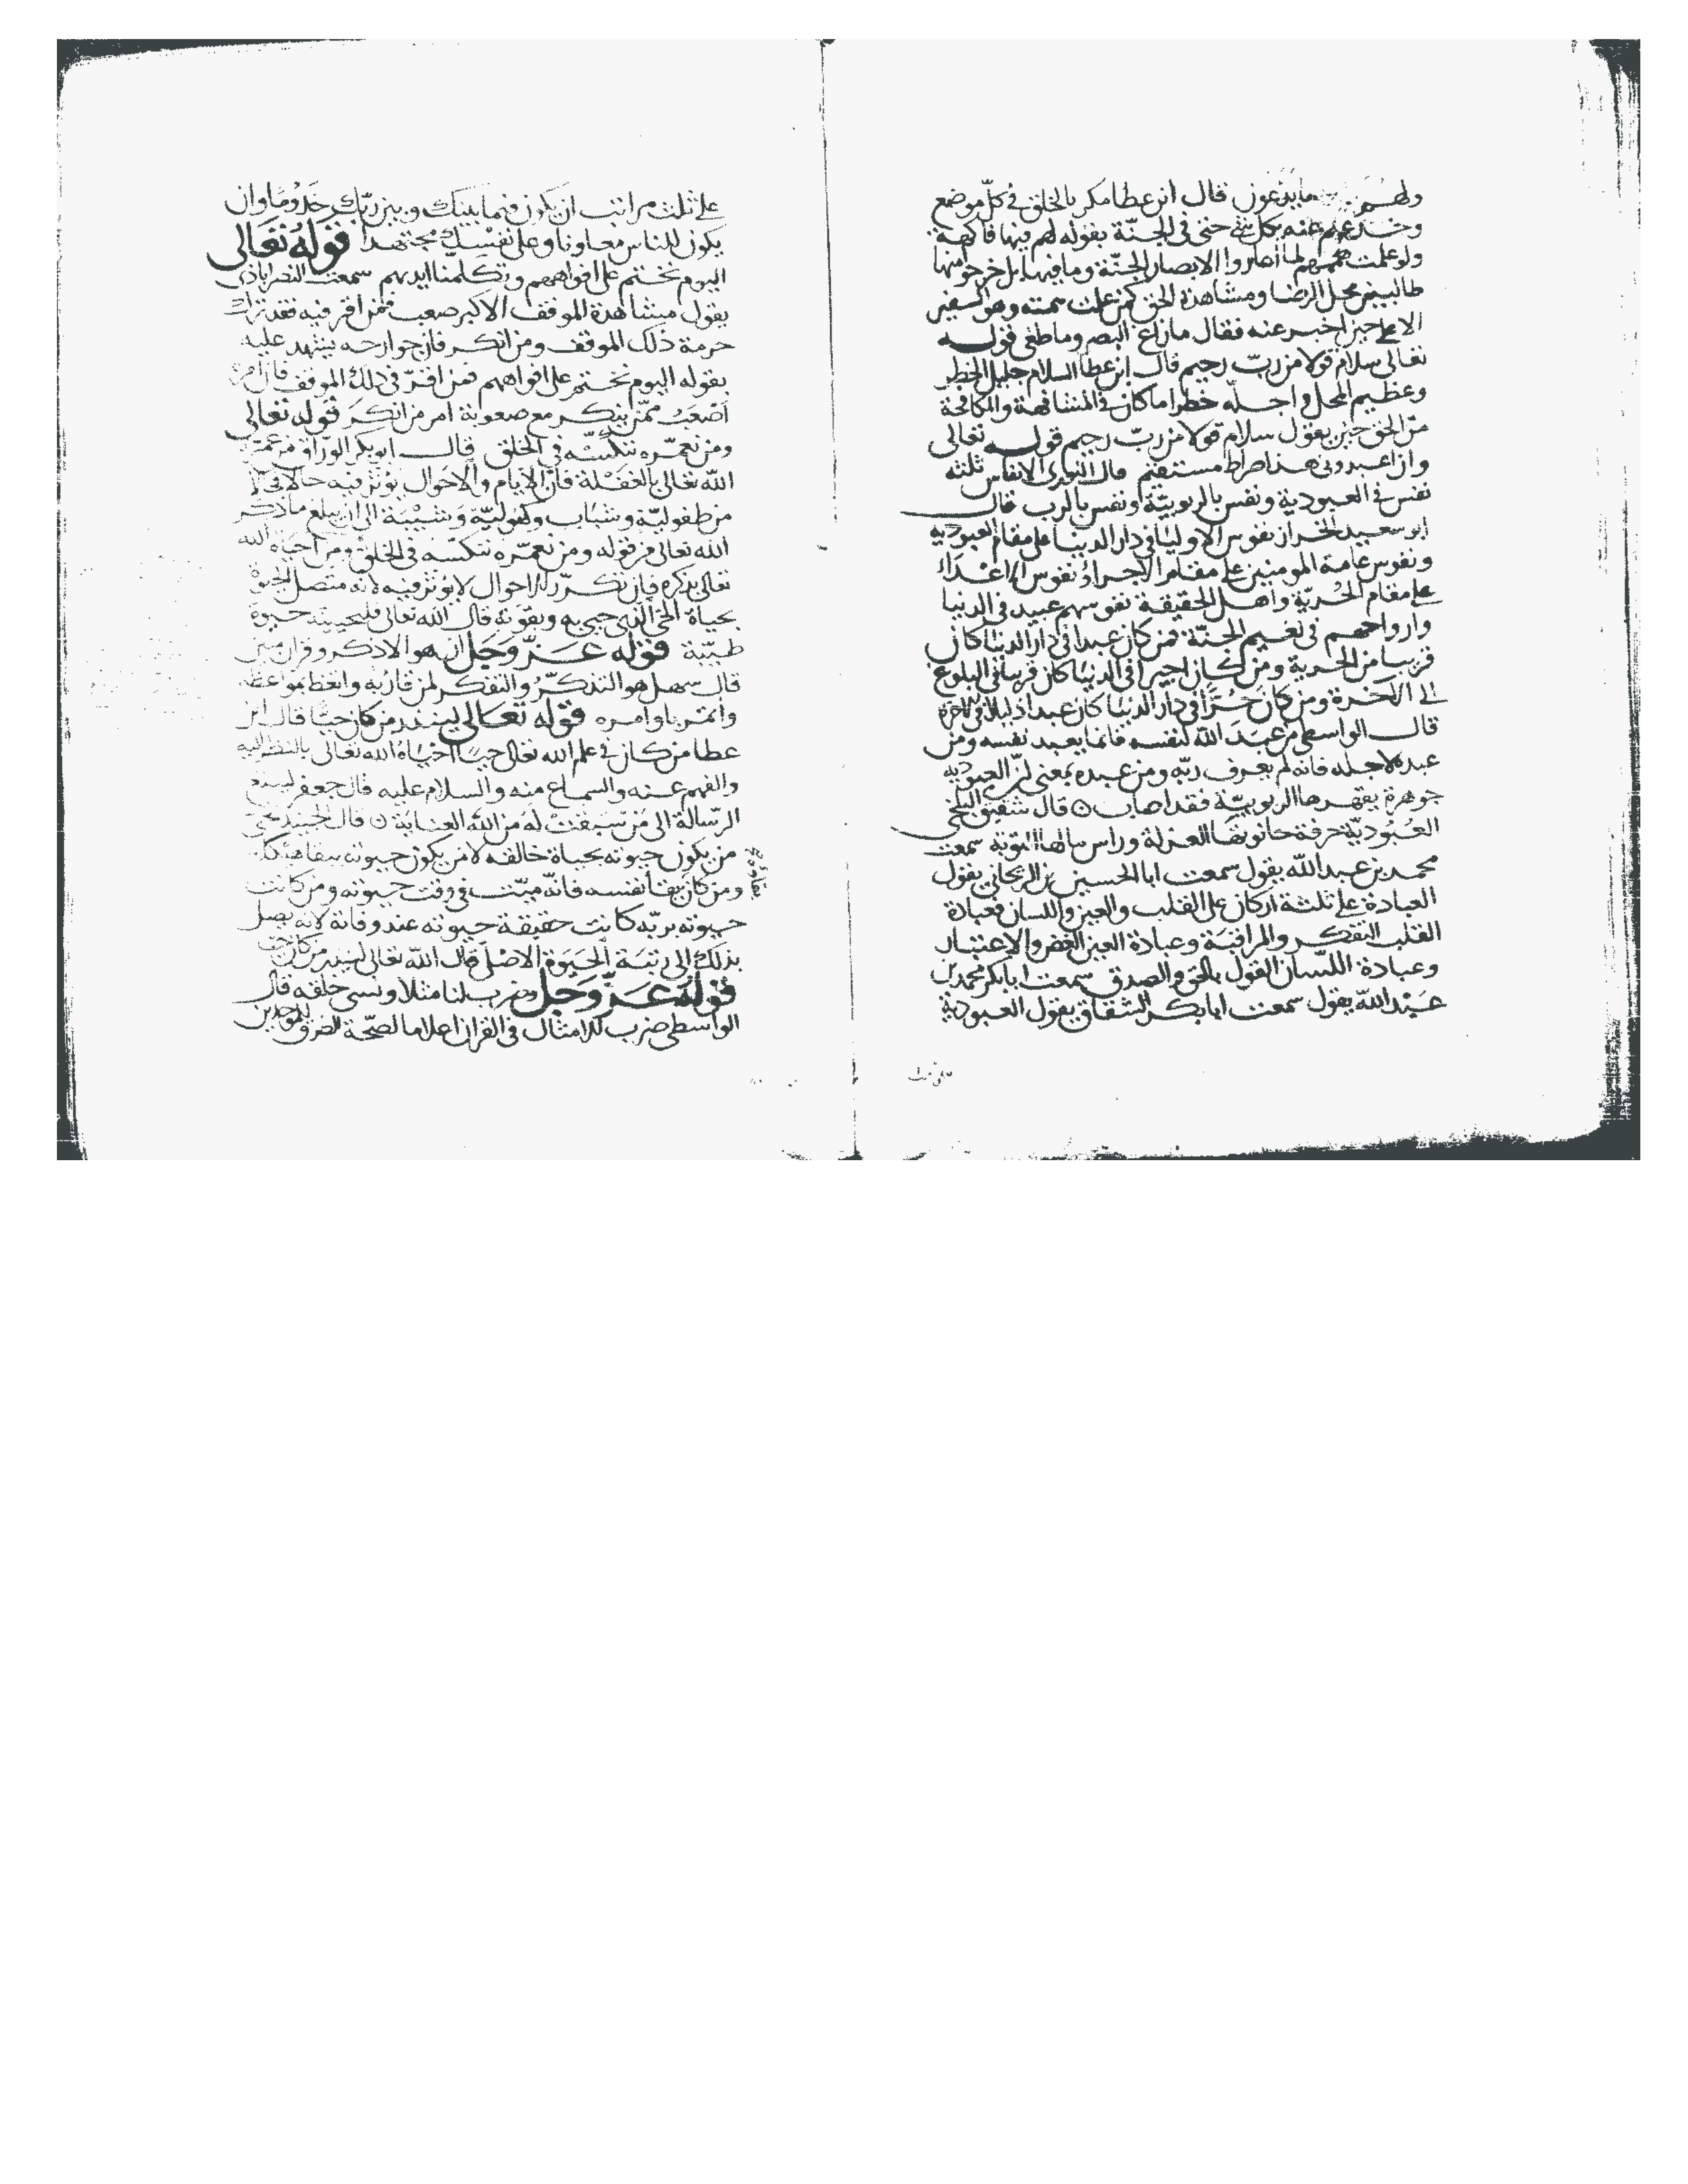 ولهم ما يدعون قال ابن عطا مكر بالخلق في كل موضع
وخدعهم عنه بكل شي حتى في الجنة بقوله لهم فيها فاكهة
ولو علت هممهم لما أعاروا الابصار الجنة وما فيها بل خرجوا منها
طالبين محل الرضا ومشاهدة الحق كمن علت همته وهو السفير
الاعلى حين اخبر عنه فقال ما زاغ البصر وما طغى قوله
تعالى سلام قولا من رب رحيم قال ابن عطا السلام جليل الخطر
وعظيم المحل واجله خطرا ما كان في المشافهة والمكافحة
من الحق حين يقول سلام قولا من رب رحيم قوله تعالى
وان اعبدوني هذا صراط مستقيم قال النوري الانفاس ثلثه
نفس في العبودية ونفس بالربوبية ونفس بالرب قال
ابو سعيد الخراز نفوس الاوليا في دار الدنيا على مقام العبوديه
ونفوس عامة المومنين على مقام الاجراء ونفوس الاعداء
على مقام الحرية واهل الحقيقة نفوسهم عبيد في الدنيا
وارواحهم في نعيم الجنة فمن كان عبدا في دار الدنيا كان
قريبا من الحرية ومن كان اجيرا في الدنيا كان قريبا في البلوغ
الى الاخرة ومن كان حرا في دار الدنيا كان عبدا ذليلا في الاخرة
قال الواسطي من عبد الله لنفسه فانما يعبد نفسه ومن
عبده لاجله فانه لم يعرف ربه ومن عبده بمعنى ان العبوديه
جوهرة يظهرها الربوبية فقد اصاب ⊙ قال شقيق البلخي
العبودية حرفة حانوتها العزلة وراس مالها التوبة سمعت
محمد بن عبد الله يقول سمعت ابا الحسين بن الزنجاني يقول
العبادة على ثلثة اركان على القلب والعين واللسان فعبادة
القلب التفكر والمراقبة وعبادة العين الغض والاعتبار
وعبادة اللسان القول بالحق والصدق سمعت ابا بكر محمد بن
عبد الله يقول سمعت ابا بكر الشقاق يقول العبودية
على ثلث مراتب ان يكون فيما بينك وبين ربك خدوما وان
يكون للناس معاونا وعلى نفسك مجتهدا قوله تعالى
اليوم نختم على افواههم وتكلمنا ايديهم سمعت النصراباذي
يقول مشاهدة الموقف الاكبر صعب فمن اقر فيه فقد ترك
حرمة ذلك الموقف ومن انكر فان جوارحه يشهد عليه
بقوله اليوم نختم على افواههم فمن اقر في ذلك الموقف فان امره
اصعب ممن ينكر مع صعوبة امر من انكر قوله تعالى
ومن نعمره ننكسه في الخلق قال ابو بكر الوراق من عمره
الله تعالى بالغفلة فان الايام والاحوال يؤثر فيه حالا في
من طفولية وشباب وكهولية وشيبة الى ان يبلغ ما ذكر
الله تعالى من قوله ومن نعمره ننكسه في الخلق ومن احياه الله
تعالى بذكره فان تكرر الاحوال لا يؤثر فيه لانه متصل الحيوة
بحياة الحق الذي حيي به وبقوته قال الله تعالى فلنحيينه حيوة
طيبة قوله عز وجل ان هو الا ذكر وقران مبين
قال سهل هو التذكر والتفكر لمن قاربه واتعظ بمواعظه
واتمر باوامره قوله تعالى لينذر من كان حيا قال ابن
عطا من كان في علم الله تعالى حيا احياه الله تعالى بالنظر اليه
والفهم عنه والسماع منه والسلام عليه قال جعفر ليسمع
الرسالة الى من سبقت له من الله العناية ⊙ قال الجنيد حي
من يكون حيوته بحياة خالقه لا من يكون حيوته ببقاء هيكله
ومن كان بقاء نفسه فانه ميت في وقت حيوته ومن كانت
حيوته بربه كانت حقيقة حيوته عند وفاته لانه يصل
بذلك الى رتبة الحيوة الاصلي قال الله تعالى لينذر من كان حيا
قوله عز وجل وضرب لنا مثلا ونسي خلقه قال
الواسطي ضرب الامثال في القران اعلاما لصحة الطرق للموحدين
بقاؤه